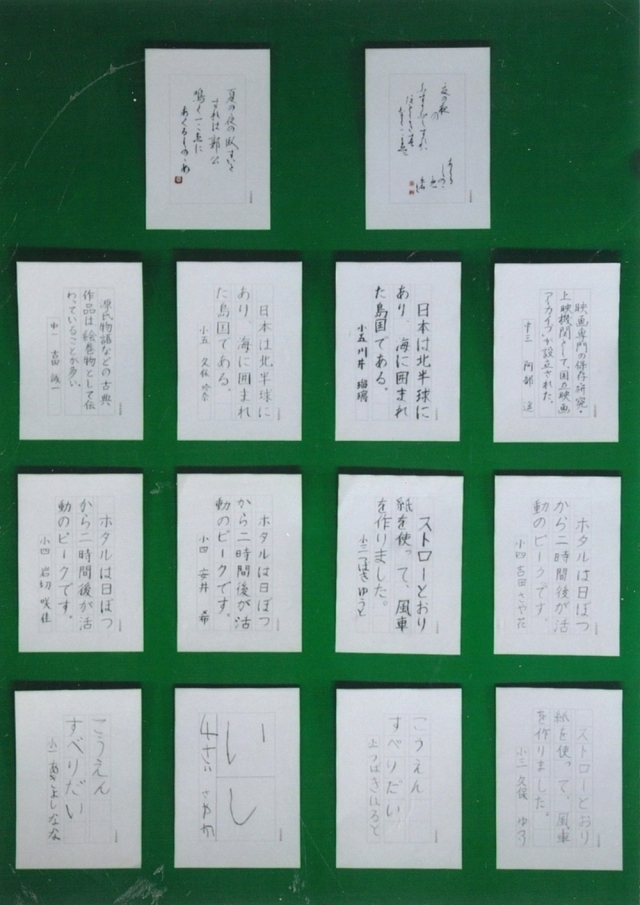 夏の夜の臥すかと
すれば郭公
鳴く一こゑに
あくるしのゝめ
夏の夜
の
映画専門の保存研究・
上映機関として、国立映画
アーカイブが設立された。
中三 阿部
日本は北半球に
あり、海に囲まれ
た島国である。
小五 川井 瑠璃
日本は北半球に
あり、海に囲まれ
た島国である。
小五 久保 玲奈
源氏物語などの古典
作品は絵巻物として伝
わっていることが多い。
中一 吉田 誠一
ホタルは日ぼつ
から二時間後が活
動のピークです。
小四 古田 さや花
ストローとおり
紙を使って、風車
を作りました。
小三 つばきゆうと
ホタルは日ぼつ
から二時間後が活
動のピークです。
小四 安井 希
ホタルは日ぼつ
から二時間後が活
動のピークです。
小四 岩切 咲佳
ストローとおり
紙を使って、風車
を作りました。
小三 久保 ゆう
こうえん
すべりだい
小一 つばきはると
い
し
4さい さやか
こうえん
すべりだい
小一 あきよしなな